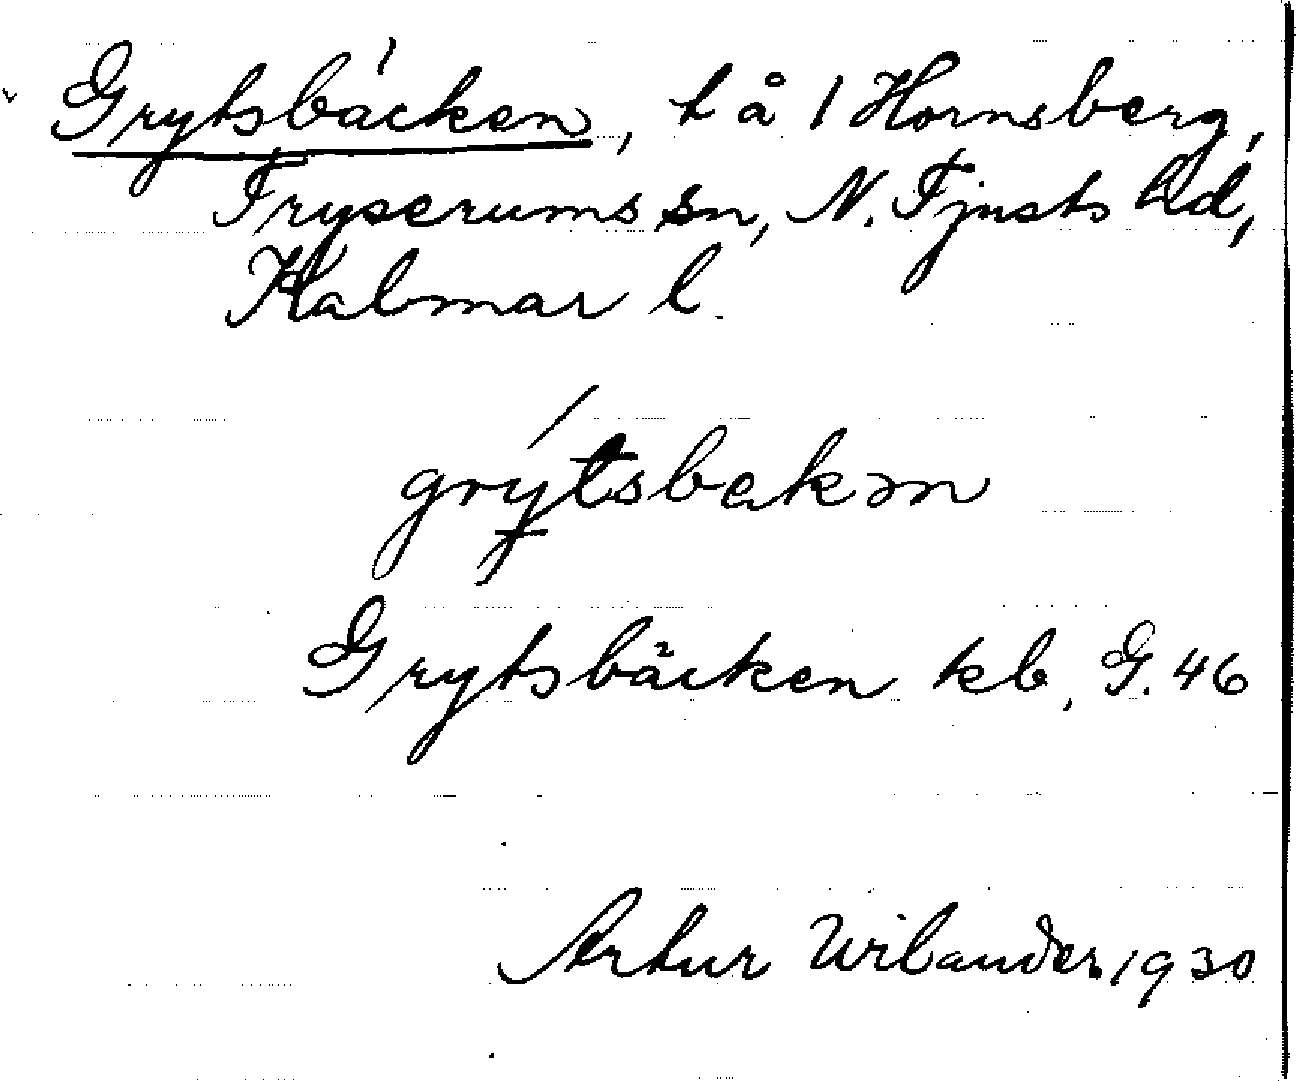 Grytsbäcken, t å 1 Hornsberg,
Tryserums sn, N. Tjusts hd,
Kalmar l.
Grytsbäcken kb, G. 46
Artur Wilander 1930